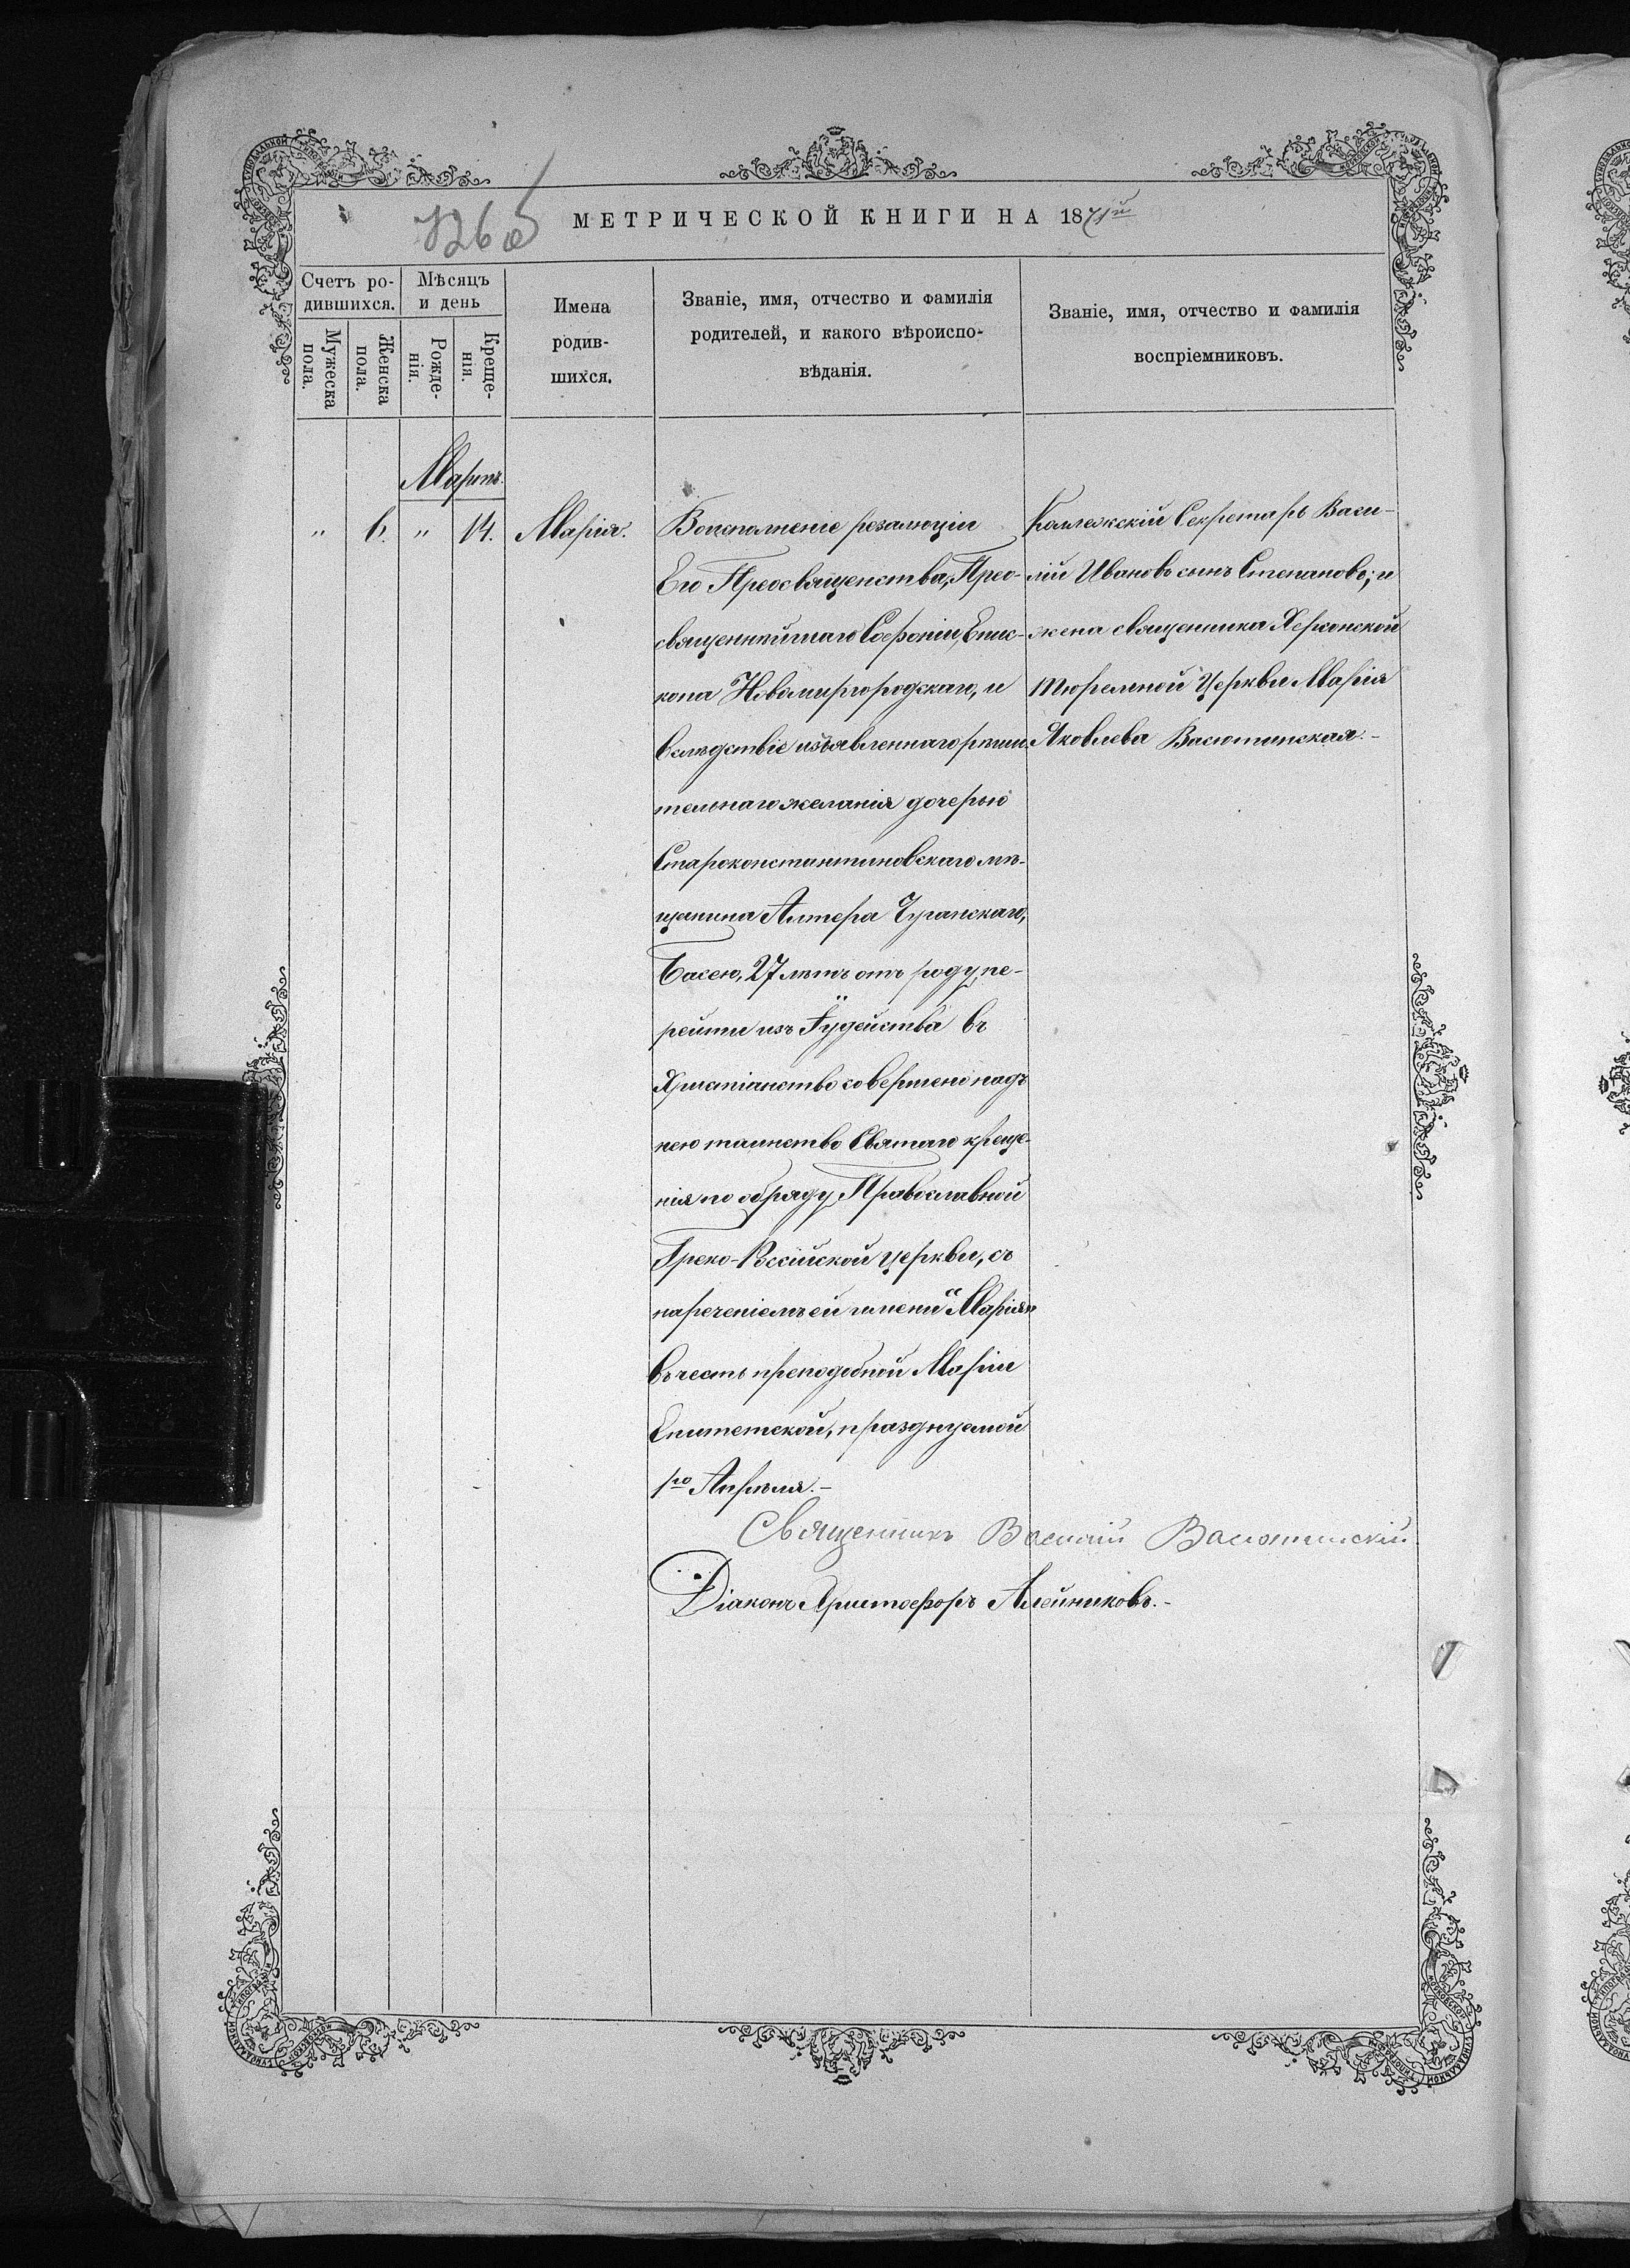 126 об
МЕТРИЧЕСКОЙ КНИГИ НА 1871й
Счетъ ро-
дившихся.
Мѣсяцъ
и день
Имена
родив-
шихся.
Званіе, имя, отчество и фамилія
родителей, и какого вѣроиспо-
вѣданія.
Званіе, имя, отчество и фамилія
воспріемниковъ.
Мужеска
пола.
Женска
пола.
Рожде-
нія.
Креще-
нія.
Мартъ.
" 6. " 14. Марія.
Воисполненіе резолюціи
Его Преосвященства, Прео-
священнѣйшаго Софоніи, Епис-
копа Новомиргородскаго, и
вслѣдствіе изъявленнаго рѣши-
тельнаго желанія дочерью
Староконстантиновскаго мѣ-
щанина Алтера Чуганскаго,
Басею, 27 лѣтъ отъ роду, пе-
рейти изъ Іудейства въ
Христіанство совершено надъ
нею таинство Святаго креще-
нія по обряду Православной
Греко-Россійской церкви, съ
нареченіемъ ей имени "Марія"
въ честь преподобной Маріи
Египетской, празднуемой
1го Апрѣля.-
Коллежскій Секретарь Васи-
лій Ивановъ сынъ Степановъ; и
жена священника Херсонской
Тюремной Церкви Марія
Яковлева Васютинская.-
Священникъ Василій Васютинскій.
Діаконъ Христофоръ Алейниковъ.-